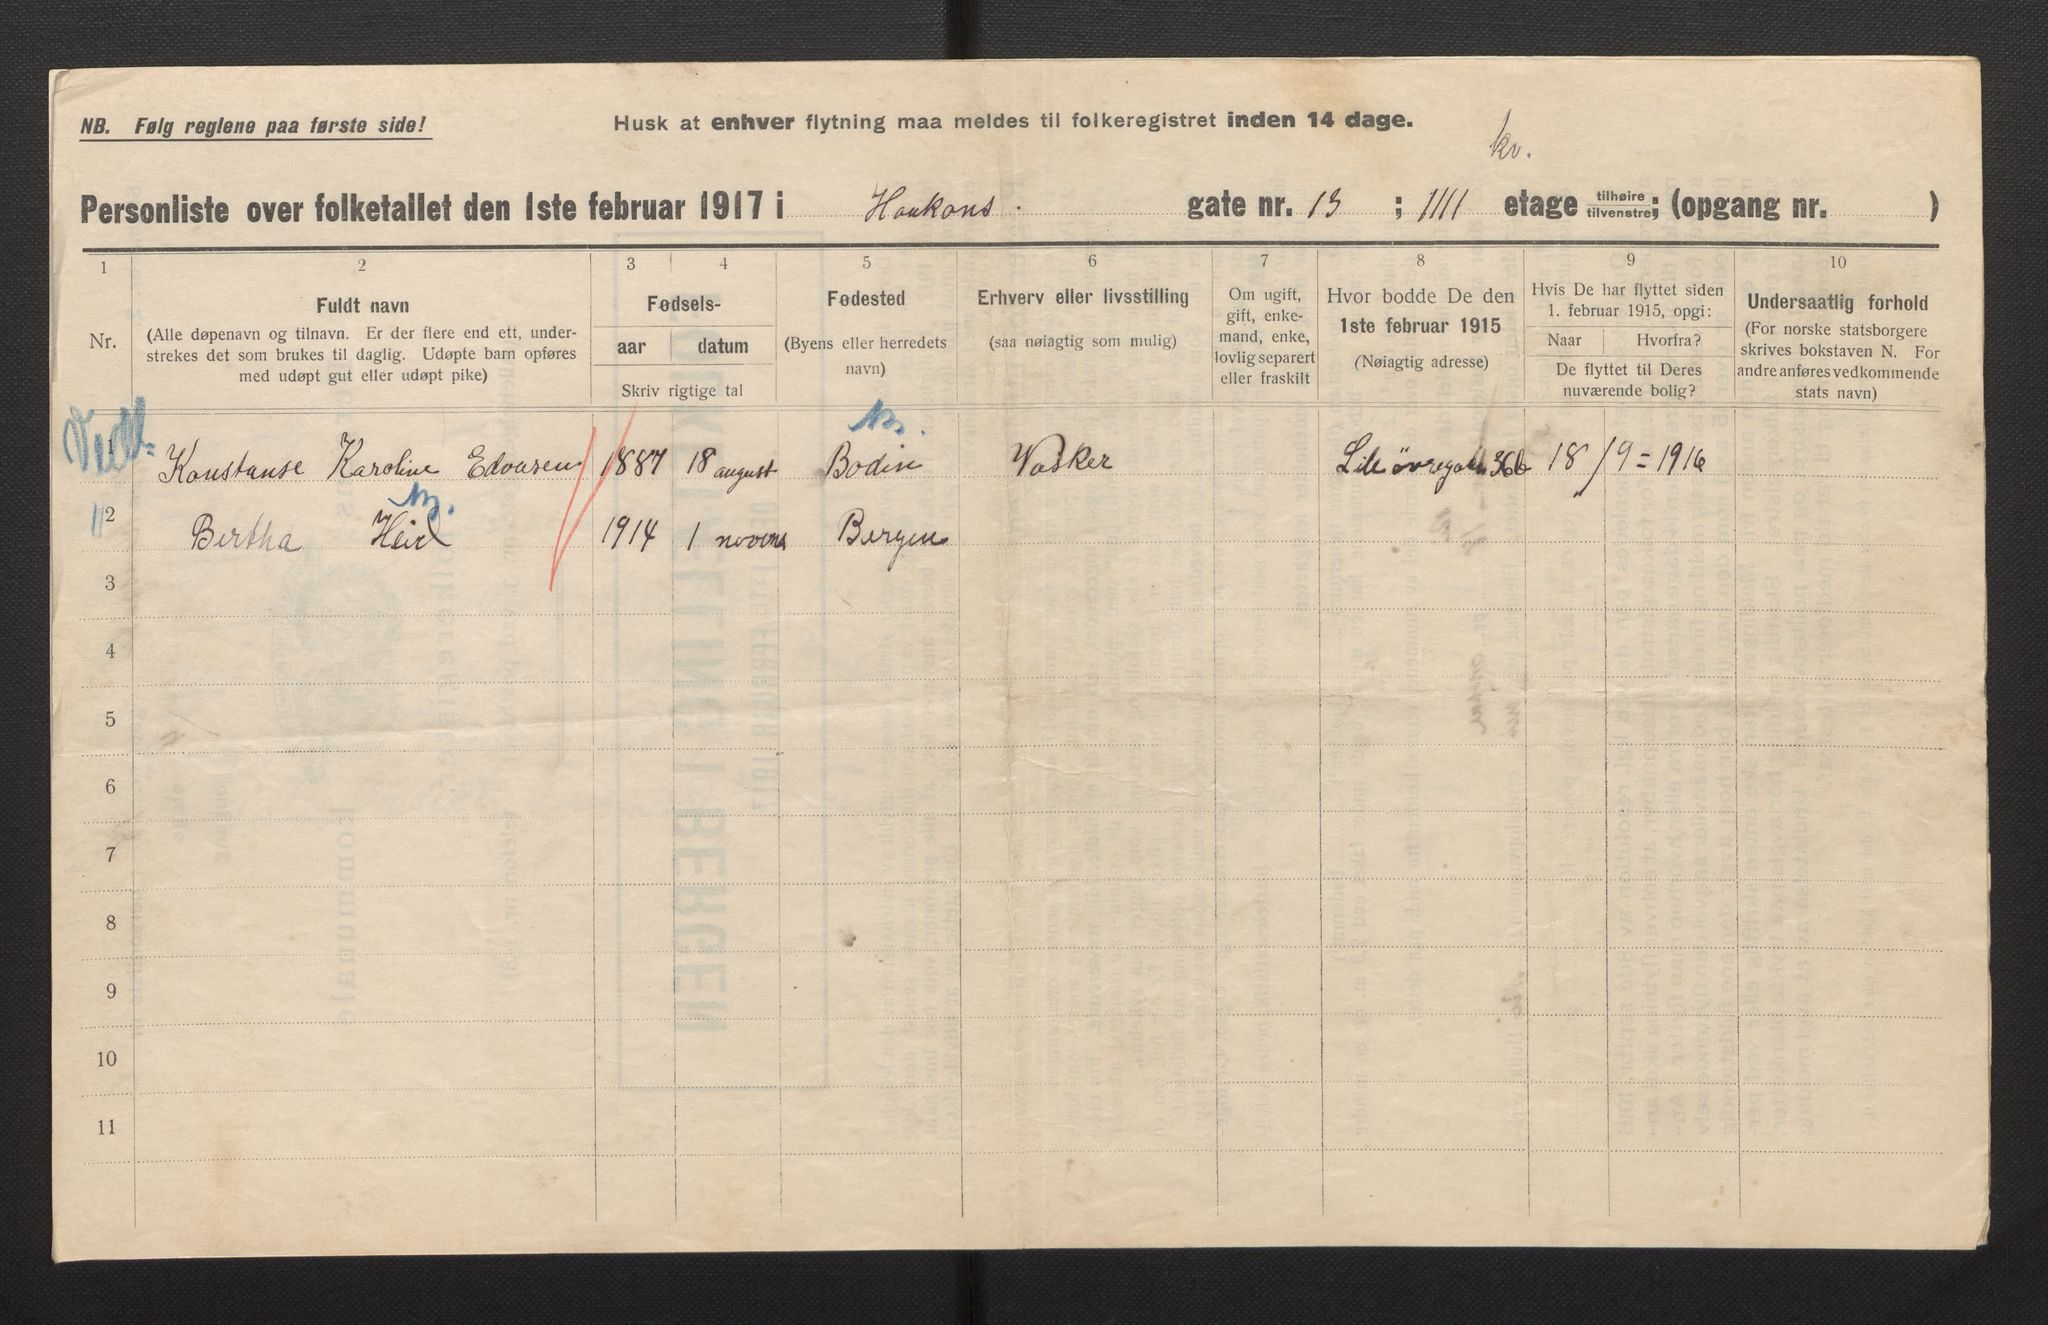 NB. Følg reglene paa første side!
Husk at enhver flytning maa meldes til folkeregistret inden 14 dage.
kv.
Personliste over folketallet den 1ste februar 1917 i Haakons gate nr. 13 ; 1111 etage tilhøire tilvenstre ; (opgang nr. )
1 2 3 4 5 6 7 8 9 10
Nr.
Fuldt navn
(Alle døpenavn og tilnavn. Er der flere end ett, under-
strekes det som brukes til daglig. Udøpte barn opføres
med udøpt gut eller udøpt pike)
Fødsels-
aar datum
Skriv rigtige tal
Fødested
(Byens eller herredets
navn)
Erhverv eller livsstilling
(saa nøiagtig som mulig)
Om ugift,
gift, enke-
mand, enke,
lovlig separert
eller fraskilt
Hvor bodde De den
1ste februar 1915
(Nøiagtig adresse)
Hvis De har flyttet siden
1. februar 1915, opgi:
Naar Hvorfra?
De flyttet til Deres
nuværende bolig?
Undersaatlig forhold
(For norske statsborgere
skrives bokstaven N. For
andre anføres vedkommende
stats navn)
1 Konstanse Karoline Edvarsen 1887 18 august Bodin Vasker Lille øvregaten 36b 18/9 = 1916
2 Bertha 1914 1 Bergen
3
4
5
6
7
8
9
10
11